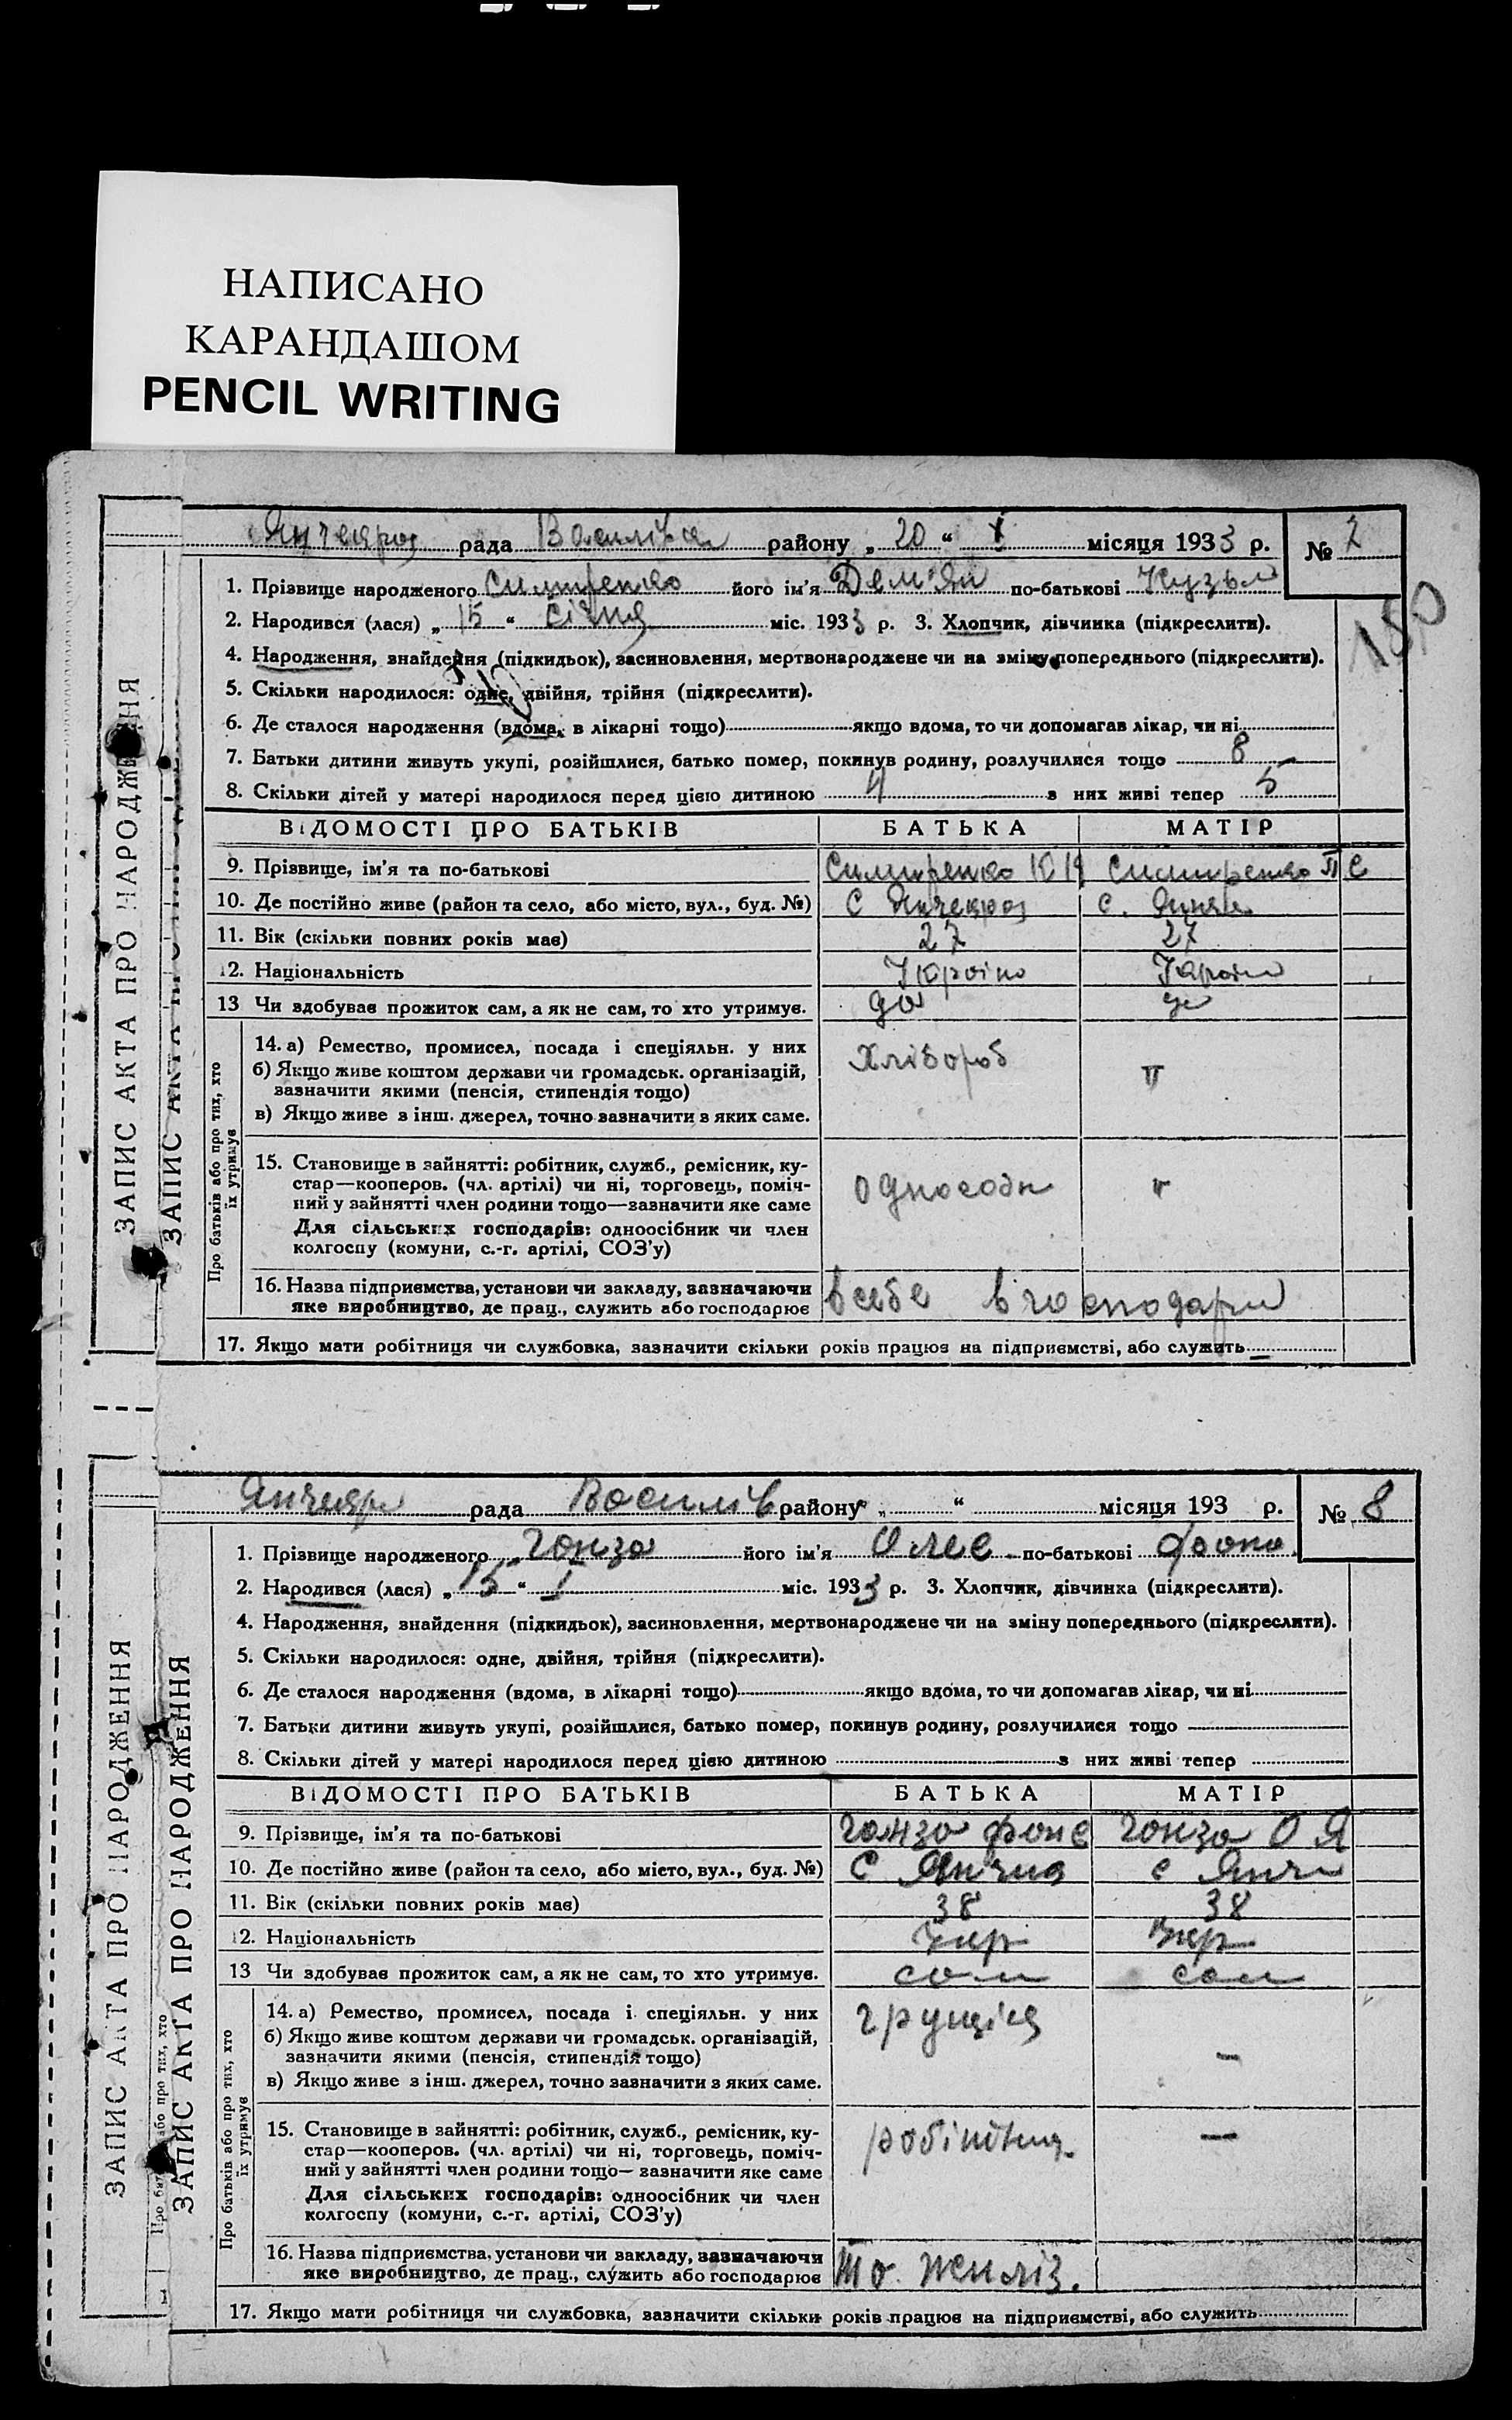 НАПИСАНО
КАРАНДАШОМ
PENCIL WRITING
ЗАПИС АКТА ПРО НАРОДЖЕННЯ
рада Василівка району „ 20 “ I місяця 1933 р. № 2
1. Прізвище народженого його ім'я Дем'ян по-батькові Кузьм
2. Народився (лася) „ 15 “ січня міс. 1933 р. 3. Хлопчик, дівчинка (підкреслити).
4. Народження, знайдення (підкидьок), засиновлення, мертвонароджене чи на зміну попереднього (підкреслити).
5. Скільки народилося: одне, двійня, трійня (підкреслити).
6. Де сталося народження (вдома, в лікарні тощо) якщо вдома, то чи допомагав лікар, чи ні
7. Батьки дитини живуть укупі, розійшлися, батько помер, покинув родину, розлучилися тощо 8
8. Скільки дітей у матері народилося перед цією дитиною 4 з них живі тепер 5
ВІДОМОСТІ ПРО БАТЬКІВ БАТЬКА МАТІР
9. Прізвище, ім'я та по-батькові
10. Де постійно живе (район та село, або місто, вул., буд. №) с с.
11. Вік (скільки повних років має) 27 27
12. Національність Україн Україн
13 Чи здобуває прожиток сам, а як не сам, то хто утримує. да
Про батьків або про тих, хто їх утримує
14. а) Ремество, промисел, посада і спеціяльн. у них Хлібороб "
б) Якщо живе коштом держави чи громадськ. організацій,
зазначити якими (пенсія, стипендія тощо)
в) Якщо живе з інш. джерел, точно зазначити з яких саме.
15. Становище в зайнятті: робітник, служб., ремісник, ку-
стар—кооперов. (чл. артілі) чи ні, торговець, поміч-
ний у зайнятті член родини тощо—зазначити яке саме "
Для сільських господарів: одноосібник чи член
колгоспу (комуни, с.-г. артілі, СОЗ'у)
16. Назва підприємства, установи чи закладу, зазначаючи
яке виробництво, де прац., служить або господарює в себе в господарш
17. Якщо мати робітниця чи службовка, зазначити скільки років працює на підприємстві, або служить —
150
ЗАПИС АКТА ПРО НАРОДЖЕННЯ
рада Василів району „ “ місяця 193 р. № 8
1. Прізвище народженого Гонза його ім'я Олес по-батькові
2. Народився (лася) „ 15 “ I міс. 1933 р. 3. Хлопчик, дівчинка (підкреслити).
4. Народження, знайдення (підкидьок), засиновлення, мертвонароджене чи на зміну попереднього (підкреслити).
5. Скільки народилося: одне, двійня, трійня (підкреслити).
6. Де сталося народження (вдома, в лікарні тощо) якщо вдома, то чи допомагав лікар, чи ні
7. Батьки дитини живуть укупі, розійшлися, батько помер, покинув родину, розлучилися тощо
8. Скільки дітей у матері народилося перед цією дитиною з них живі тепер
ВІДОМОСТІ ПРО БАТЬКІВ БАТЬКА МАТІР
9. Прізвище, ім'я та по-батькові Гонза Гонза О Я
10. Де постійно живе (район та село, або місто, вул., буд. №) С с
11. Вік (скільки повних років має) 38 38
12. Національність Укр Укр
13 Чи здобуває прожиток сам, а як не сам, то хто утримує. сам сам
Про батьків або про тих, хто їх утримує
14. а) Ремество, промисел, посада і спеціяльн. у них
б) Якщо живе коштом держави чи громадськ. організацій,
зазначити якими (пенсія, стипендія тощо) —
в) Якщо живе з інш. джерел, точно зазначити з яких саме.
15. Становище в зайнятті: робітник, служб., ремісник, ку-
стар—кооперов. (чл. артілі) чи ні, торговець, поміч- —
ний у зайнятті член родини тощо—зазначити яке саме
Для сільських господарів: одноосібник чи член
колгоспу (комуни, с.-г. артілі, СОЗ'у)
16. Назва підприємства, установи чи закладу, зазначаючи
яке виробництво, де прац., служить або господарює
17. Якщо мати робітниця чи службовка, зазначити скільки років працює на підприємстві, або служить